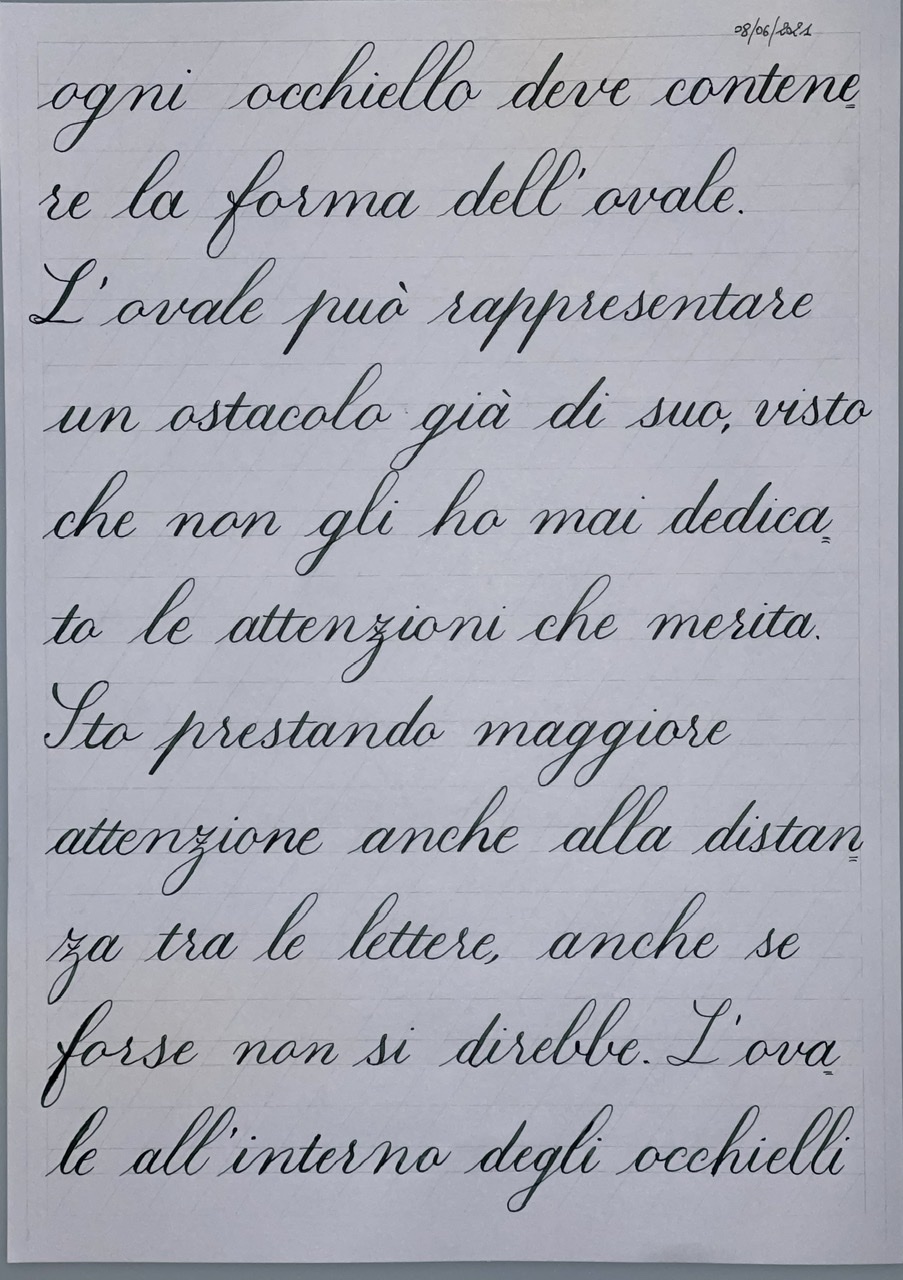 08/06/2021
ogni occhiello deve contene=
re la forma dell'ovale.
L'ovale può rappresentare
un ostacolo già di suo, visto
che non gli ho mai dedica=
to le attenzioni che merita.
Sto prestando maggiore
attenzione anche alla distan=
za tra le lettere, anche se
forse non si direbbe. L'ova=
le all'interno degli occhielli